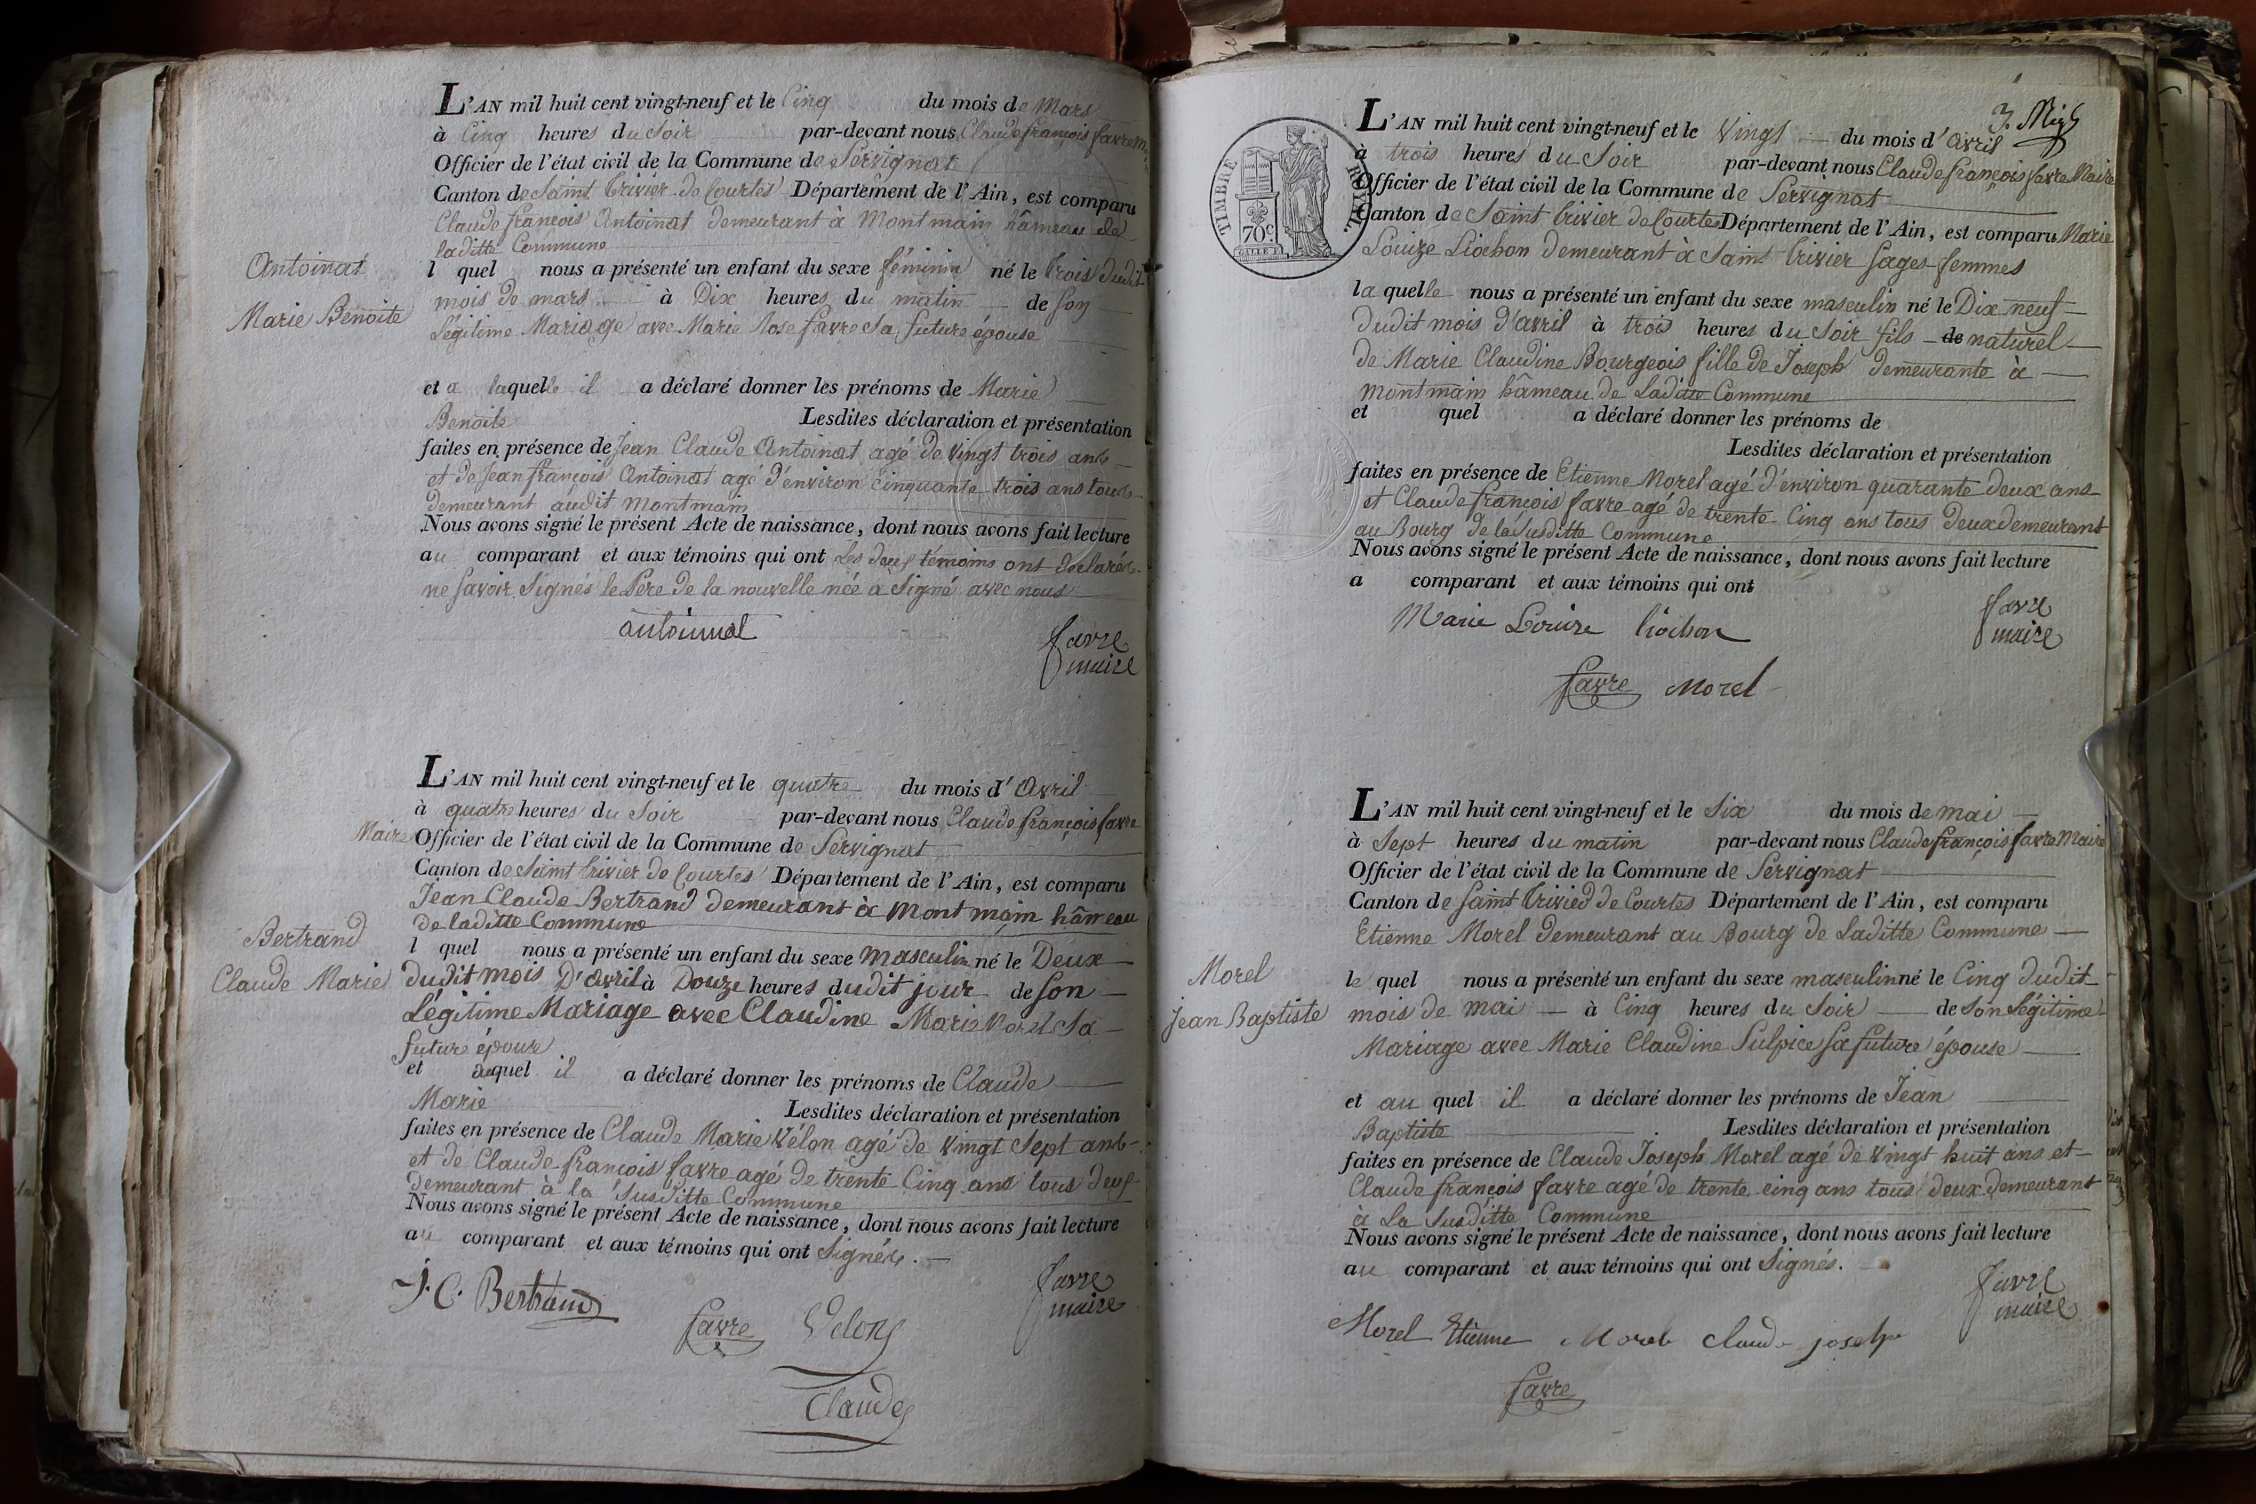 L'AN mil huit cent vingt-neuf et le Cinq du mois de Mars
à Cinq heures du Soir par-devant nous Claude françois favre M
Officier de l'état civil de la Commune de Servignat
Canton de Saint trivier de Courtes Département de l'Ain, est comparu
Claude françois Antoinat demeurant à Montmain hâmeau de
laditte Commune
Antoinat
Marie Benoite
l quel nous a présenté un enfant du sexe féminin né le trois dudit
mois de mars à Dix heures du matin de son
Légitime Mariage avec Marie Rose favre sa future épouse
et a laquelle il a déclaré donner les prénoms de Marie
Benoite Lesdites déclaration et présentation
faites en présence de Jean Claude Antoinat agé de vingt trois ans
et de Jean françois Antoinat agé d'environ cinquante trois ans tous
demeurant audit Montmain
Nous avons signé le présent Acte de naissance, dont nous avons fait lecture
au comparant et aux témoins qui ont Les deux témoins ont declarés
ne savoir Signés le Père de la nouvelle née à Signé avec nous
antoinnat
favre
maire
L'AN mil huit cent vingt-neuf et le quatre du mois d'Avril
à quatre heures du Soir par-devant nous Claude françois favre
Maire Officier de l'état civil de la Commune de Servignat
Canton de Saint trivier de Courtes Département de l'Ain, est comparu
Jean Claude Bertrand demeurant à Montmain hâmeau
de laditte Commune
Bertrand
Claude Marie
l quel nous a présenté un enfant du sexe masculin né le Deux
dudit mois D'avril à Douze heures dudit jour de son
Légitime Mariage avec Claudine Marie Morel sa
future épouse
et auquel il a déclaré donner les prénoms de Claude
Marie Lesdites déclaration et présentation
faites en présence de Claude Marie Vélon agé de vingt Sept ans
et de Claude françois favre agé de trente Cinq ans tous deux
demeurant à la Susditte Commune
Nous avons signé le présent Acte de naissance, dont nous avons fait lecture
au comparant et aux témoins qui ont Signés.
J. C. Bertrand
favre
Velon
favre
maire
Claude
TIMBRE ROYAL
70 c.
L'AN mil huit cent vingt-neuf et le Vingt du mois d'avril
à trois heures du Soir par-devant nous Claude françois favre Maire
Officier de l'état civil de la Commune de Servignat
Canton de Saint trivier de Courtes Département de l'Ain, est comparu Marie
Louize Liochon demeurant à Saint trivier sages femmes
la quelle nous a présenté un enfant du sexe masculin né le Dix neuf
dudit mois d'avril à trois heures du Soir fils de naturel
de Marie Claudine Bourgeois fille de Joseph demeurante à
montmain hâmeau de Laditte Commune
et quel a déclaré donner les prénoms de
Lesdites déclaration et présentation
faites en présence de Etienne Morel agé d'environ quarante deux ans
et Claude françois favre agé de trente Cinq ans tous Deux demeurant
au Bourg de la Susditte Commune
Nous avons signé le présent Acte de naissance, dont nous avons fait lecture
a comparant et aux témoins qui ont
Marie Louize liochon
favre
maire
favre Morel
L'AN mil huit cent vingt-neuf et le Six du mois de mai
à Sept heures du matin par-devant nous Claude françois favre Maire
Officier de l'état civil de la Commune de Servignat
Canton de Saint trivier de Courtes Département de l'Ain, est comparu
Etienne Morel demeurant au Bourg de Laditte Commune
Morel
Jean Baptiste
le quel nous a présenté un enfant du sexe masculin né le Cinq dudit
mois de mai à Cinq heures du Soir de son Légitime
Mariage avec Marie Claudine Sulpice sa future épouse
et au quel il a déclaré donner les prénoms de Jean
Baptiste Lesdites déclaration et présentation
faites en présence de Claude Joseph Morel agé de Vingt huit ans et
Claude françois favre agé de trente cinq ans tous deux demeurant
à La Susditte Commune
Nous avons signé le présent Acte de naissance, dont nous avons fait lecture
au comparant et aux témoins qui ont Signés.
favre
maire
Morel Etienne Morel Claude joseph
favre